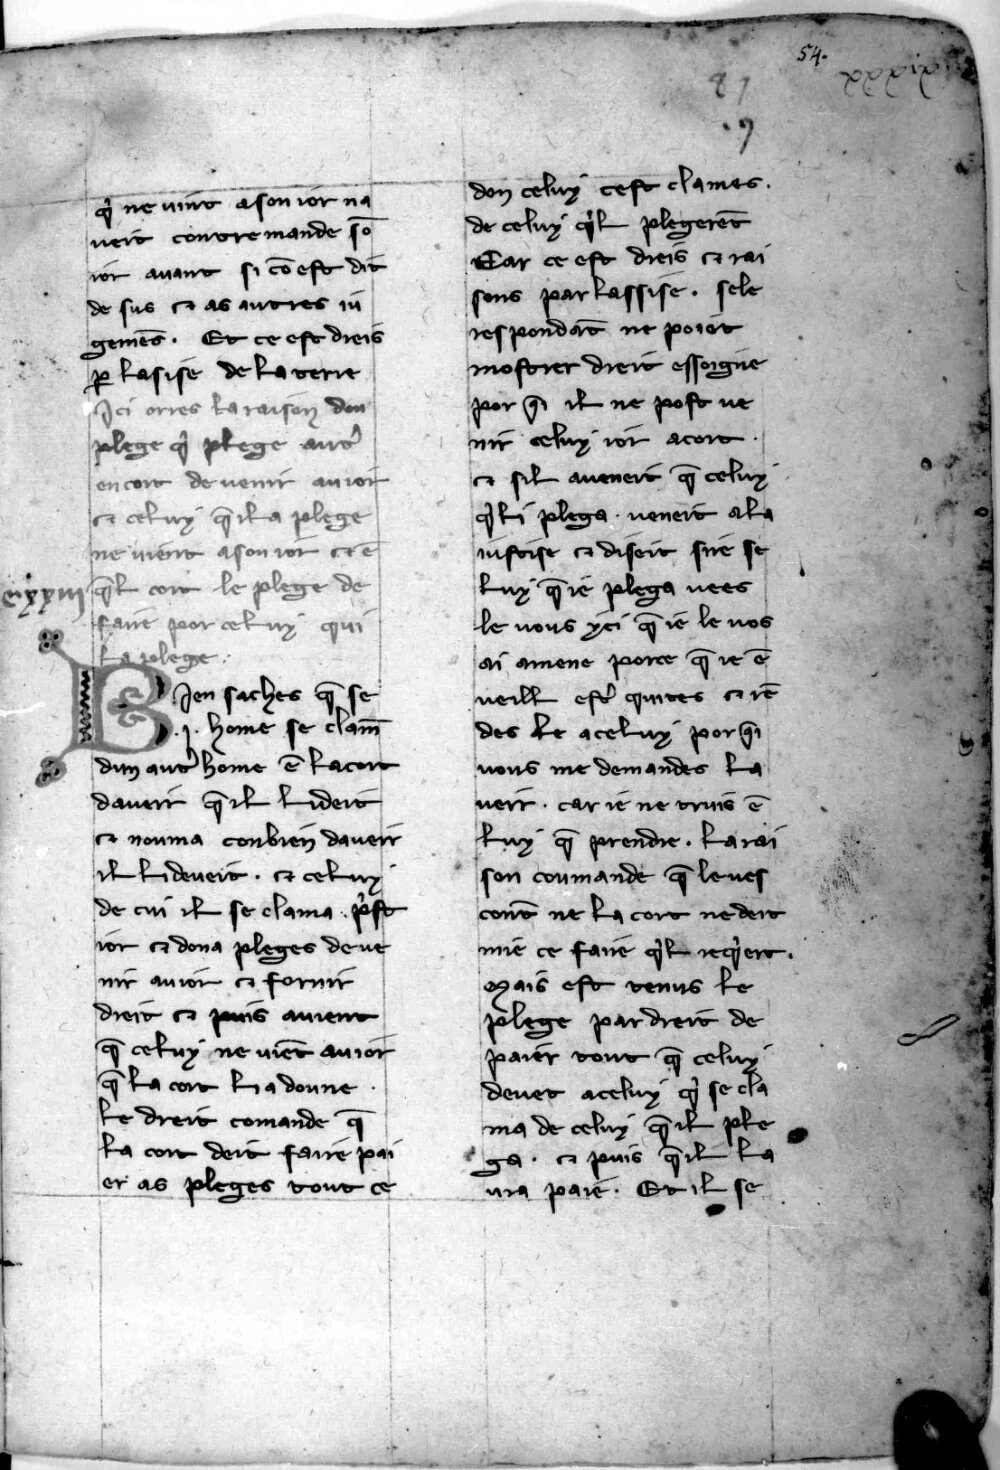 54.
87
.9
q̉ ne vint a son ior na
veit contremande sō
ior avant si cōest dit
de sus ⁊ as autres iu
gemēs. Et ce est dreis
ꝑ lasise de la terre
Ici orres la raison dou
plege q̉ plege autˀ
en cort de venir au ior
⁊ celuy q̄ il a plege
ne vient a son ior ⁊ ē
q̄l cort le plege de
faire por celuy qui
la plege.
cixxiii
BIen saches q̄ se
.j. home se clam̄
dun autˀ home ē la cort
daveir q̄ il li deit
⁊ nouma conbien daveir
il li deveit. ⁊ celuy
de cui il se clama p̉st
ior ⁊ dona pleges de ve
nir au ior ⁊ fornir
dreit ⁊ puis avient
q̄ celuy ne viēt au ior
q̄ la cort li a doune.
le dreit comande q̄
la cort deit faire pai
er as pleges tout ce
don celuy cest clames.
de celuy q̉l plegerēt
Car ce est dreis ⁊ rai
sons par lassise. se le
respondāt ne poiot
mostrer dreit essoigne
por q̉i il ne post ve
nir celuy ior a cort.
⁊ sil aveneit q̄ celuy
q̉ li plega. veneit a la
iustise ⁊ diseit sire se
luy q̄ ie plega vees
le vous yci q̄ ie le vos
ai amene porce q̄ ie ē
veill estˀ quites ⁊ rē
des le a celuy por q̉i
vous me demandes la
veir. car ie ne truis ē
luy q̄ prendre. la rai
son coumande q̄ le ves
cont̄ ne la cort ne deit
mie ce faire q̉l req̉ert.
Mais est tenus le
plege par dreit de
paier tout q̄ celuy
devet a celuy q̉ se cla
ma de celuy q̄ il ple
ga. ⁊ puis q̄ il la
ura paie. Et il se